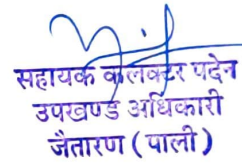 सहायक कलक्टर पदेन
उपखण्ड अधिकारी
जैतारण ( पाली )